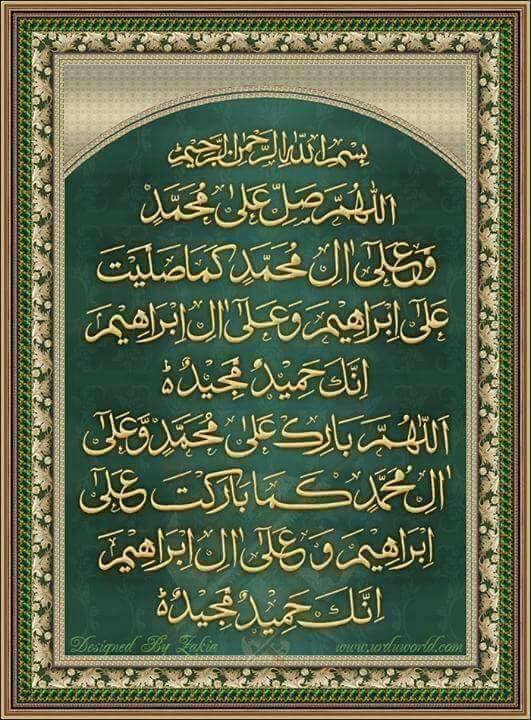 بِسْمِ اللهِ الرَّحْمٰنِ الرَّحِيْمِ
اَللّٰهُمَّ صَلِّ عَلٰى مُحَمَّدٍ
وَّعَلٰٓى اٰلِ مُحَمَّدٍ كَمَا صَلَّيْتَ
عَلٰٓى اِبْرَاهِيْمَ وَعَلٰٓى اٰلِ اِبْرَاهِيْمَ
اِنَّكَ حَمِيْدٌ مَّجِيْدٌ ه
اَللّٰهُمَّ بَارِكْ عَلٰى مُحَمَّدٍ وَّعَلٰٓى
اٰلِ مُحَمَّدٍ كَمَا بَارَكْتَ عَلٰٓى
اِبْرَاهِيْمَ وَعَلٰٓى اٰلِ اِبْرَاهِيْمَ
اِنَّكَ حَمِيْدٌ مَّجِيْدٌ ه
Designed By Zakia
www.urduworld.com